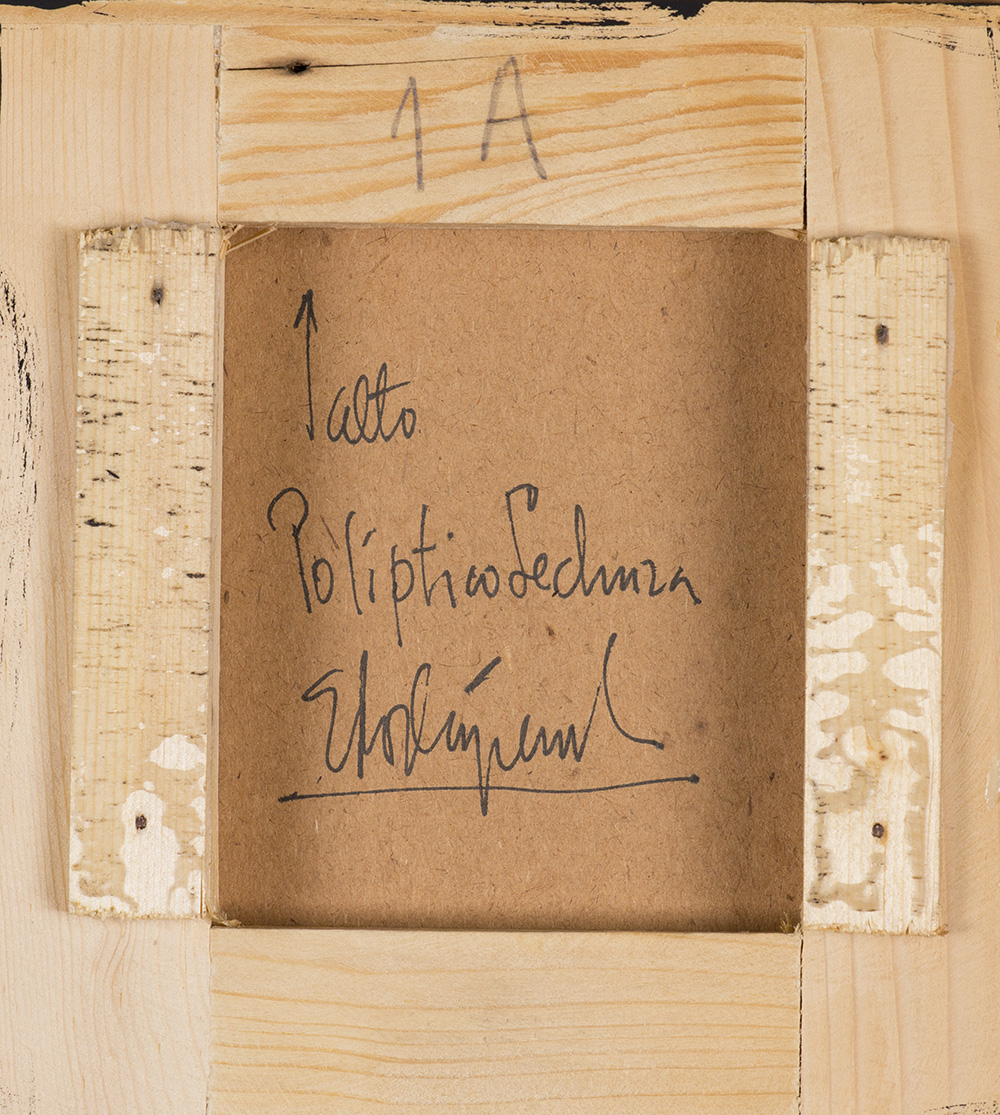 1 A
↑ alto
Políptico Lechuza